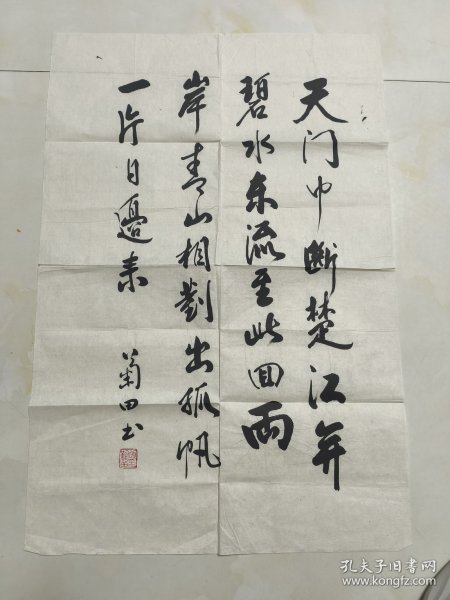 天门中断楚江开
碧水东流至此回两
岸青山相對出孤帆
一片日邊来
菊田书
孔夫子旧书网
www.kongfz.com